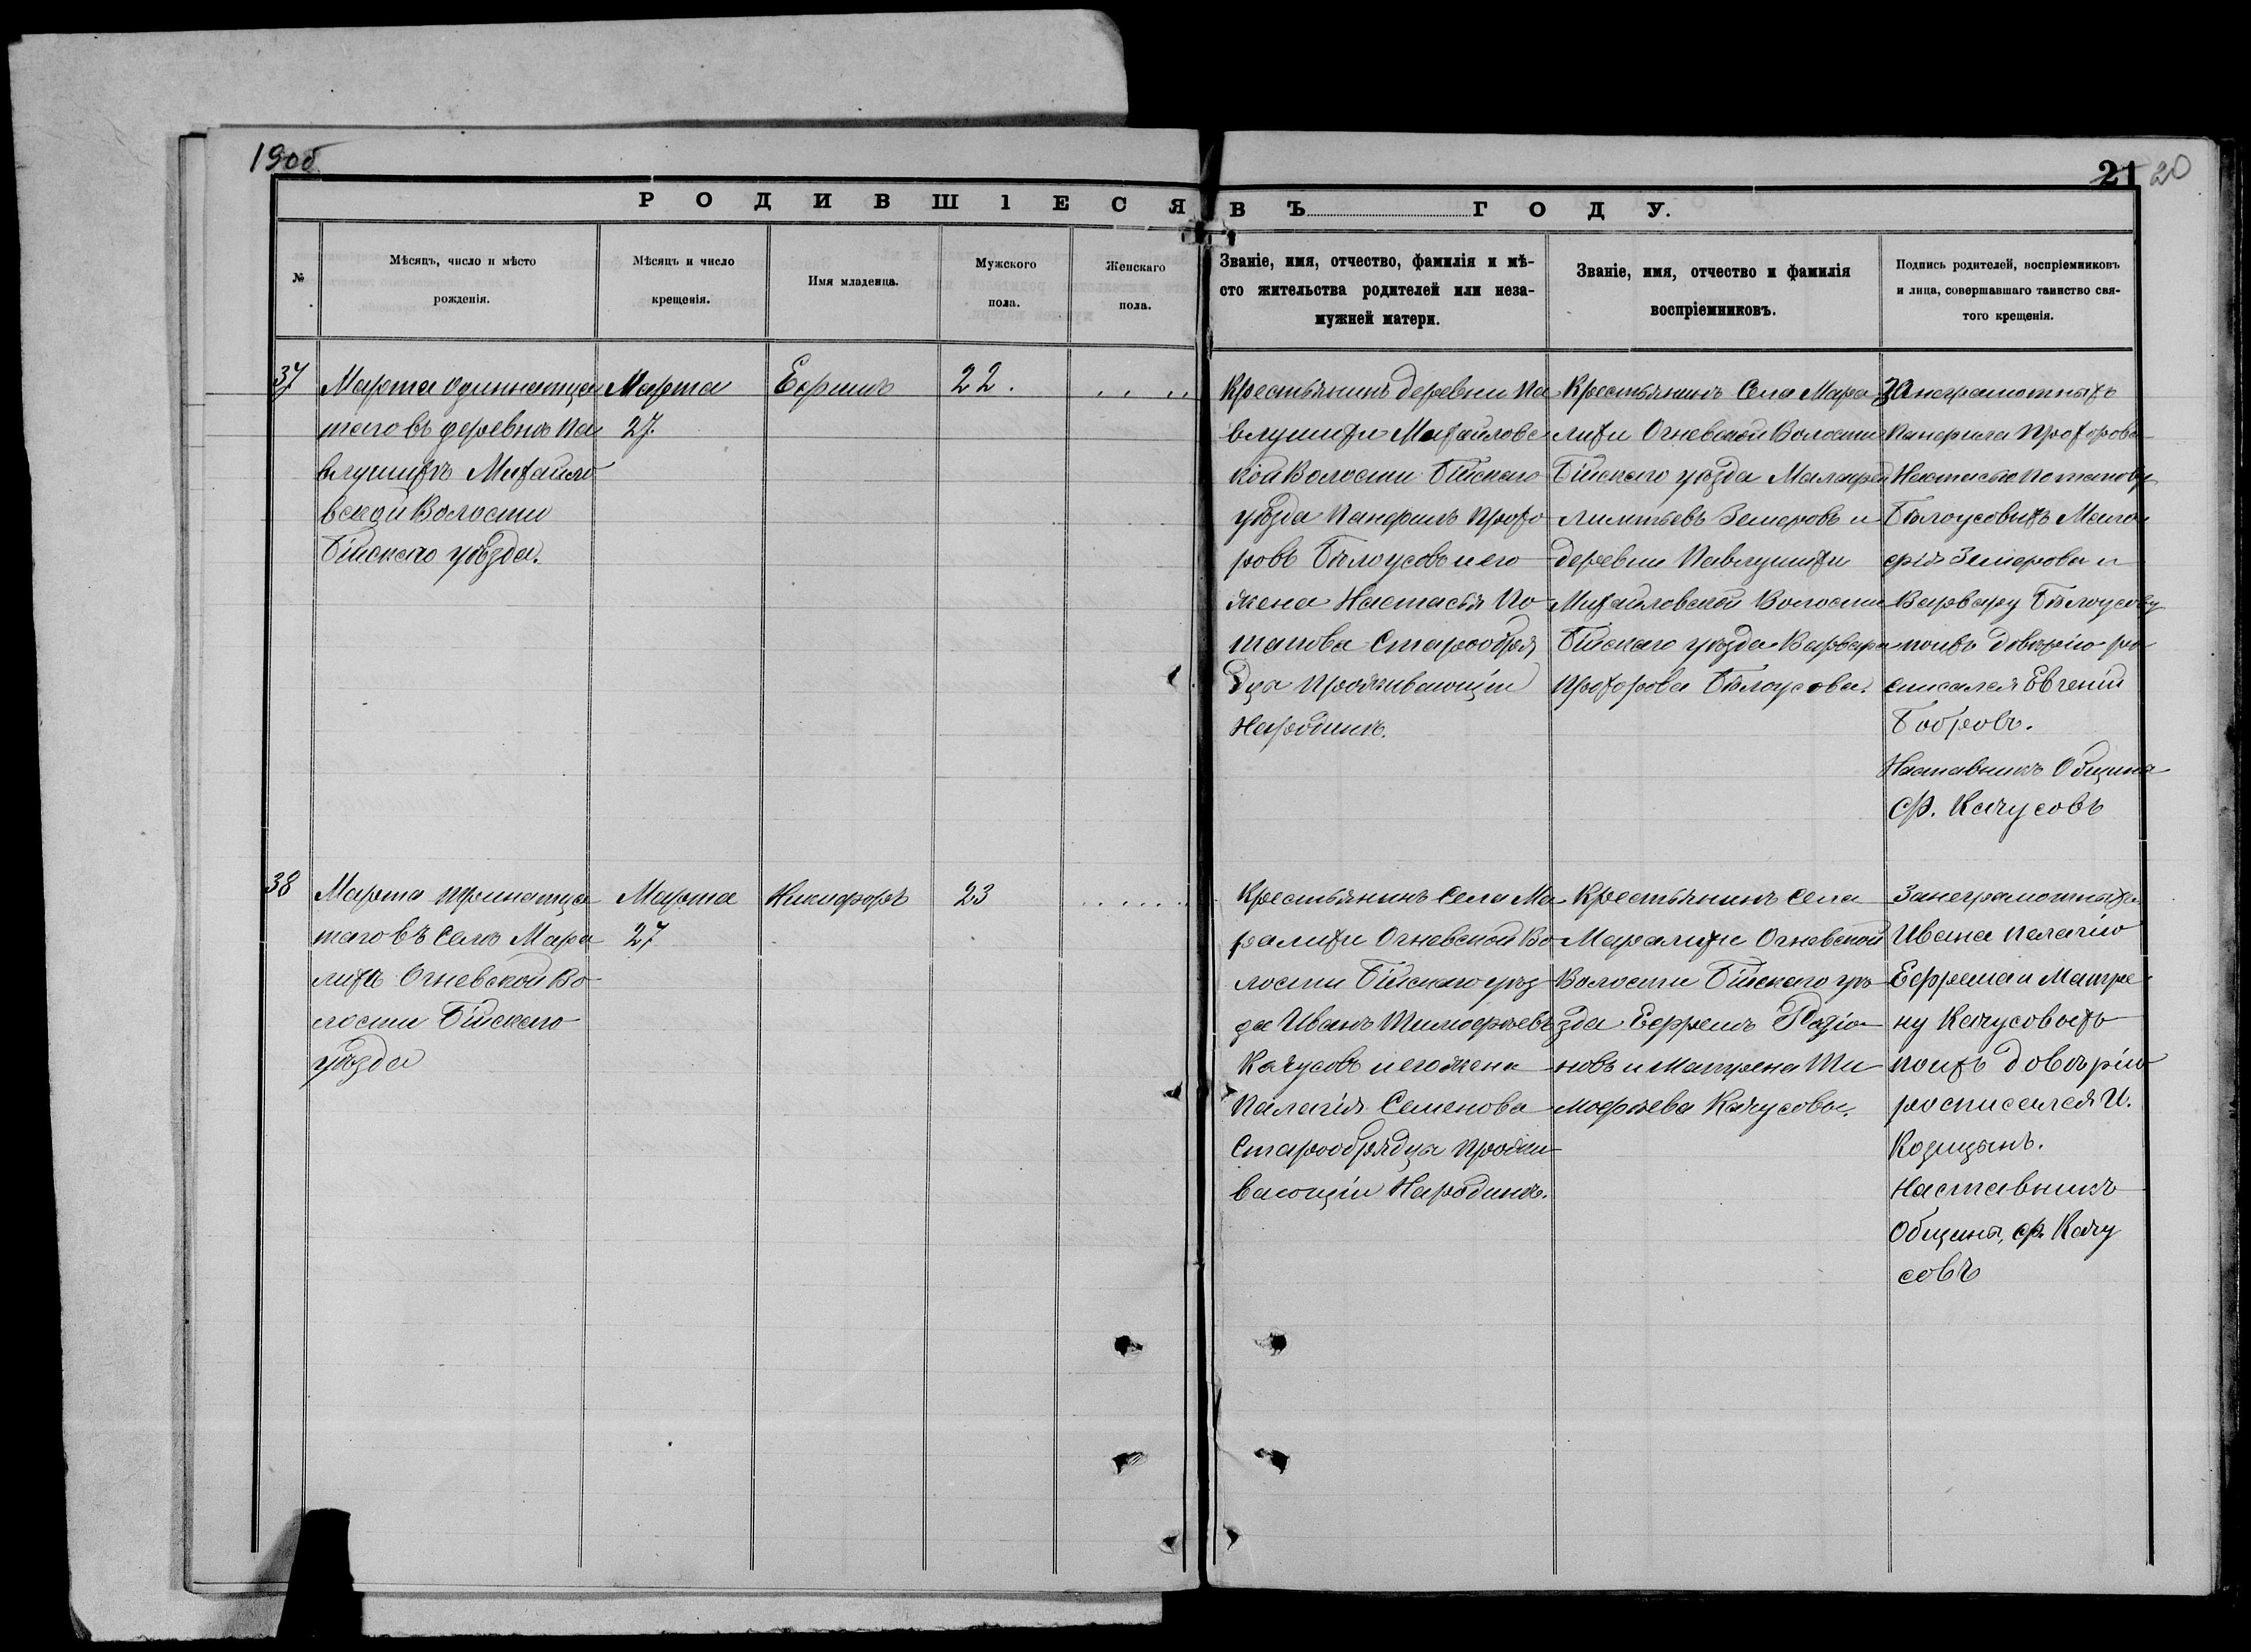 1906
21 20
РОДИВШІЕСЯ ВЪ ГОДУ.
№
Мѣсяцъ, число и мѣсто
рожденія.
Мѣсяцъ и число
крещенія.
Имя младенца.
Мужского
пола.
Женскаго
пола.
Званіе, имя, отчество, фамилія и мѣ-
сто жительства родителей или неза-
мужней матери.
Званіе, имя, отчество и фамилія
воспріемниковъ.
Подпись родителей, воспріемниковъ
и лица, совершавшаго таинство свя-
того крещенія.
37
Марта одиннатца
таго въ деревнѣ Па
влушихѣ Михайло
вской Волости
Бійскаго уѣзда.
Марта
27.
Ефимъ
22.
Крестьянинъ деревни Па
влушихи Михайловс
кой Волости Бійскаго
уѣзда Панфилъ Прохо
ровъ Бѣлоусовъ и его
жена Настасья По
тапова Старообря
дцы проживающіи
Народинѣ.
Крестьянинъ Села Мара
лихи Огневской Волости
Бійскаго уѣзда Малафей
ЛиитьевъЗемеровъ и
деревни Павлушихи
Михайловской Волости
Бійскаго уѣзда Варвара
Прохорова Бѣлоусова.
Занеграмотныхъ
Панфила Прохорова
Настасью Потапову
Бѣлоусовыхъ Мало
фія Земерова и
Варвару Бѣлоусову
поихъ довѣрію ро
списался Евгеній
Бобровъ.
Наставникъ Общины
Ф. Качусовъ
38
Марта тринатца
таго въ Селѣ Мара
лихѣ Огневской Во
лости Бійскаго
уѣзда
Марта
27
Никифоръ
23
Крестьянинъ Села Ма
ралихи Огневской Во
лости Бійскаго уѣз
да Иванъ Тимофѣевъ
Качусовъ и его жена
Палагія Семенова
Старообрядцы прожи
вающіи Народинѣ.
Крестьянинъ Села
Маралихи Огневской
Волости Бійскаго уѣ
зда Ефремъ Радіо
новъ и Матрена Ти
мофѣева Качусовы.
Занеграмотныхъ
Ивана Палагію
Ефрема и Матре
ну Качусовыхъ
поихъ довѣрію
росписался И.
Козицынъ.
Наставникъ
Общины, Ф. Качу
совъ